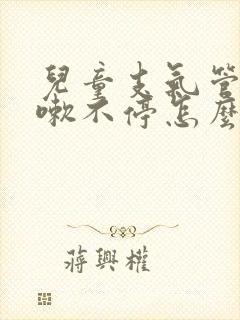 兒童支氣管
嗽不停怎麼
蔣興權